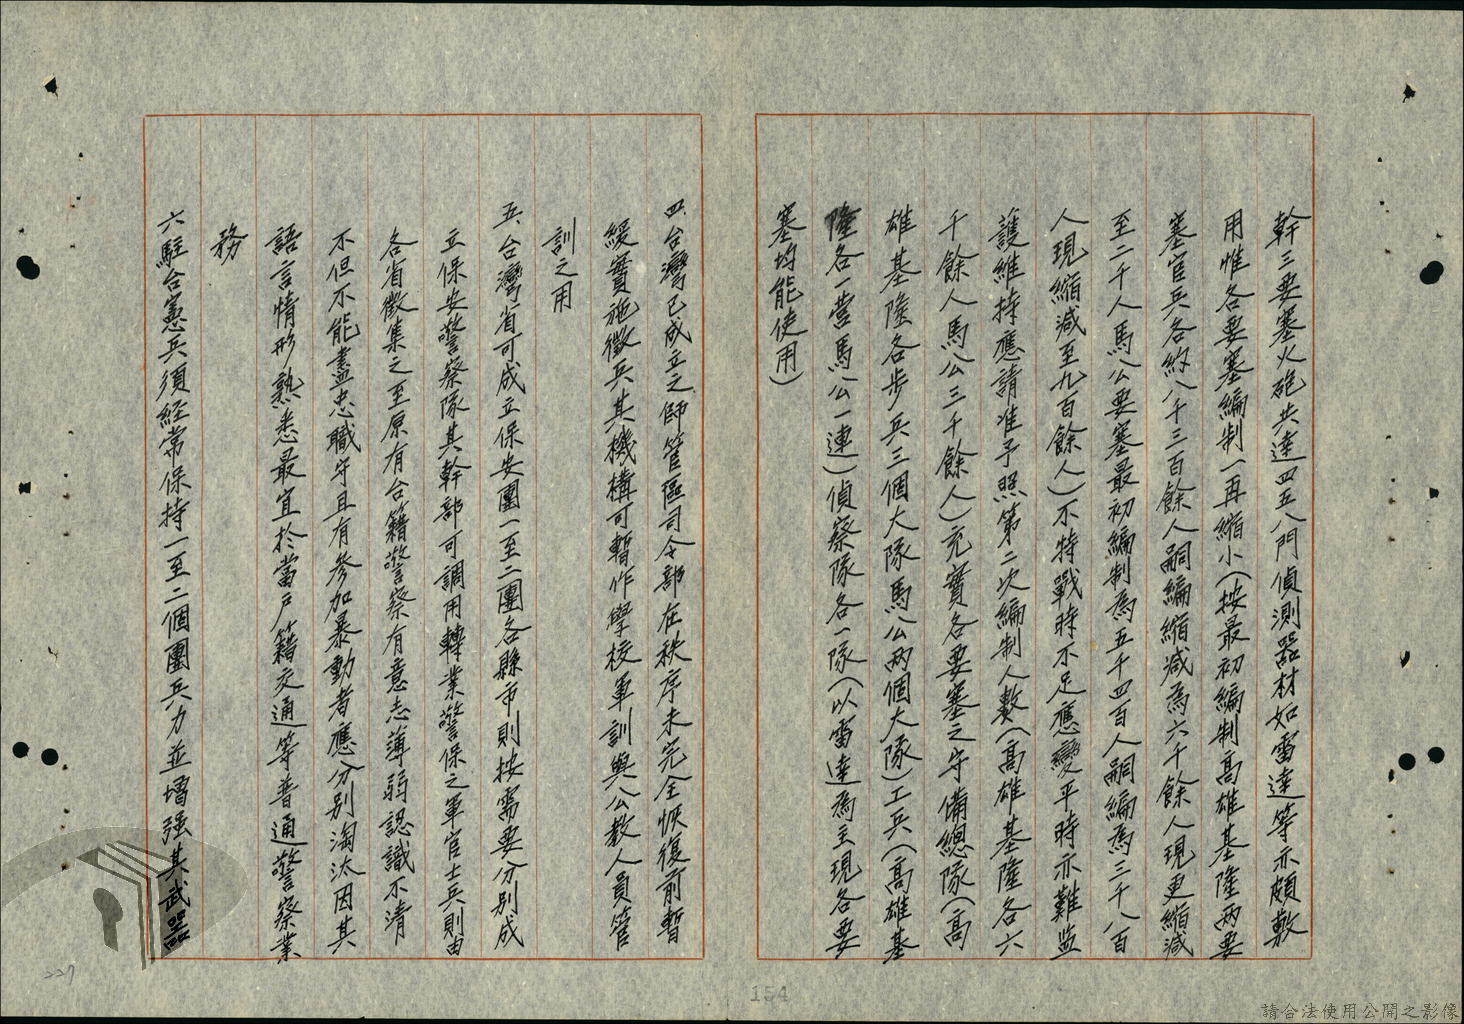 幹三要塞火砲共達四五八門偵測器材如雷達等亦頗敷
用惟各要塞編制一再縮小(按最初編制高雄基隆兩要
塞官兵各約八千三百餘人嗣編縮減為六千餘人現更縮減
至二千人馬公要塞最初編制為五千四百人嗣編為三千八百
人現縮減至九百餘人)不特戰時不足應變平時亦難監
護維持應請准予照第二次編制人數(高雄基隆各六
千餘人馬公三千餘人)充實各要塞之守備總隊(高
雄基隆各步兵三個大隊馬公兩個大隊)工兵(高雄基
隆各一營馬公一連)偵察隊各一隊(以雷達為主現各要
塞均能使用)
四、台灣已成立之師管區司令部在秩序未完全恢復前暫
緩實施徵兵其機構可暫作學校軍訓與公教人員管
訓之用
五、台灣省可成立保安團一至二團各縣市則按需要分別成
立保安警察隊其幹部可調用轉業警保之軍官士兵則由
各省徵集之至原有台籍警察有意志薄弱認識不清
不但不能盡忠職守且有參加暴動者應分別淘汰因其
語言情形熟悉最宜於當戶籍交通等普通警察業
務
六駐台憲兵須經常保持一至二個團兵力並增强其武器
154
227
請合法使用公開之影像